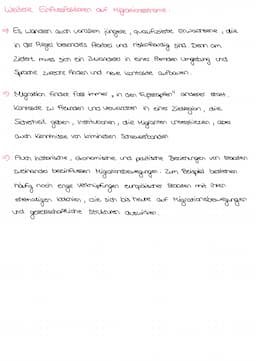 Weitere Einflussfaktoren auf Migrationsströme
→ Es wandern auch vor allem jüngere, qualifizierte Erwachsene, die
in der Regel besonders flexibel und risikofreudig sind. Denn am
Zielort muss sich ein Zuwanderer in einer fremden Umgebung und
Sprache zurecht finden und neue Kontakte aufbauen.
→ Migration findet fast immer "in den Fußstapfen" anderer statt.
Kontakte zu Freunden und Verwandten in einer Zielregion, die
Sicherheit geben, Institutionen, die Migranten unterstützen, aber
auch Kenntnisse von kriminellen Schleuserbanden
→ Auch historische, ökonomische und politische Beziehungen von Staaten
zueinander beeinflussen Migrationsbewegungen. Zum Beispiel bestehen
häufig noch enge Verknüpfungen europäischer Staaten mit ihren
ehemaligen Kolonien, die sich bis heute auf Migrationsbewegungen
und gesellschaftliche Strukturen auswirken.